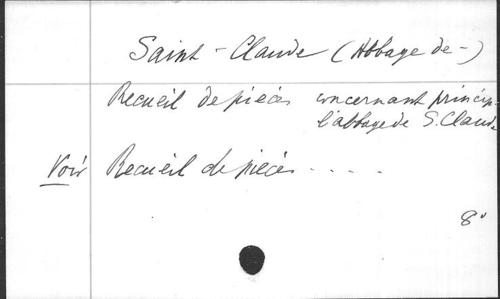 Saint-Claude (Abbaye de-)
Recueil de pièces concernant princip.
l'abbaye de S. Claude
Voir Recueil de pièces . . . .
8°